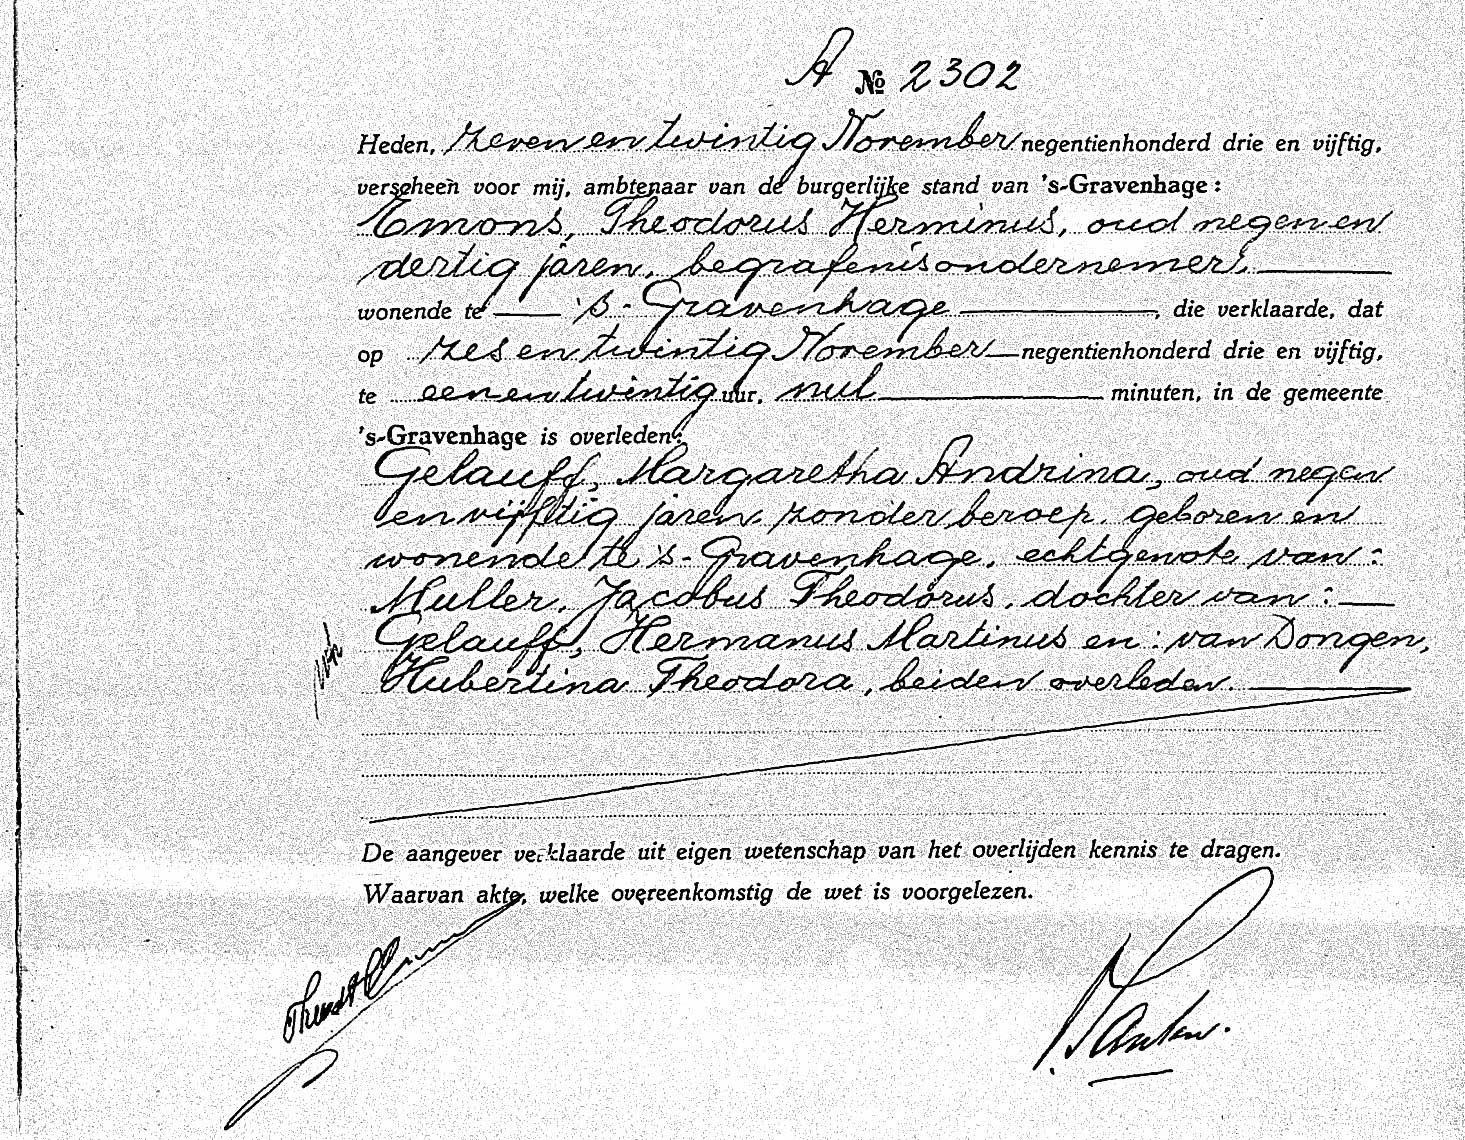 A № 2302
Heden, zeven en twintig November negentienhonderd drie en vijftig,
verscheen voor mij, ambtenaar van de burgerlijke stand van 's-Gravenhage:
Emons, Theodorus Herminus, oud negen en
dertig jaren, begrafenisondernemer,
wonende te 's-Gravenhage, die verklaarde, dat
op zes en twintig November negentienhonderd drie en vijftig,
te een en twintig uur, nul minuten, in de gemeente
's-Gravenhage is overleden:
Gelauff, Margaretha Andrina, oud negen
en vijftig jaren, zonder beroep, geboren en
wonende te 's-Gravenhage, echtgenote van:
Muller, Jacobus Theodorus, dochter van:
Gelauff, Hermanus Martinus en: van Dongen,
Hubertina Theodora, beiden overleden.
De aangever verklaarde uit eigen wetenschap van het overlijden kennis te dragen.
Waarvan akte, welke overeenkomstig de wet is voorgelezen.